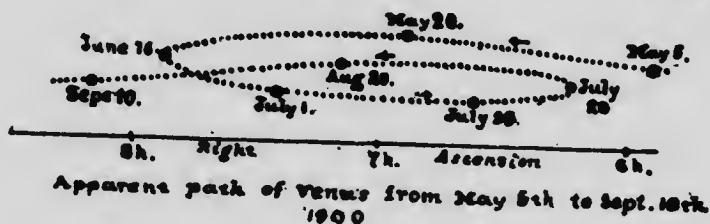 May 28.
June 16
May 5.
Aug 20.
July
20
Sept 10.
July 1.
July 28.
8h.
Right
7h.
Ascension
6h.
Apparent path of Venus from May 5th to Sept. 18th
1900